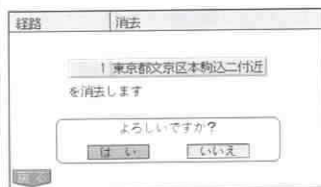 経路 消去
1 東京都文京区本駒込二付近
を消去します
よろしいですか?
はい いいえ
戻る